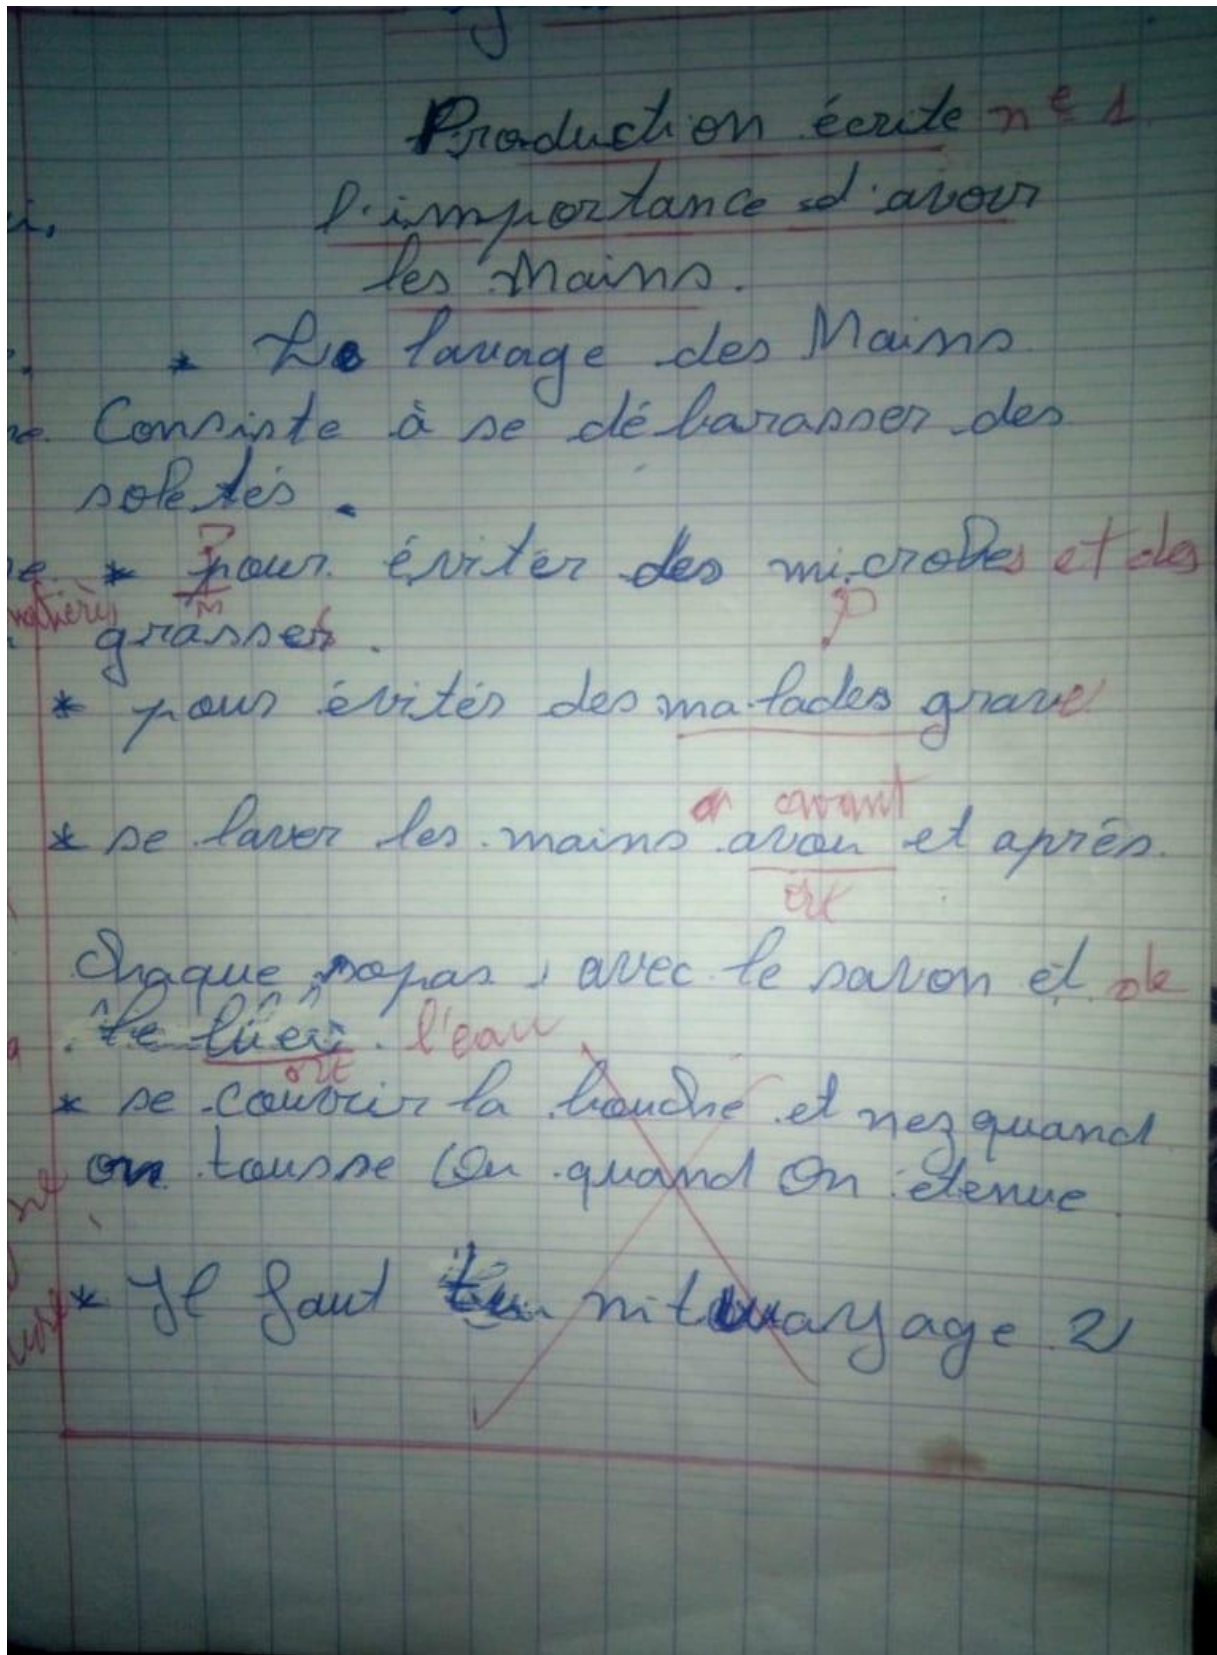 Production écrite n° 1
l'importance d'avoir
les Mains.
* Le lavage des Mains
Consiste à se débarasser des
soletés.
* pour éviter des microbes et des
grasses.
* pour évités des malades grave
avant
* se laver les mains avou et après.
ort
Chaque repas, avec le savon et de
l'eau
ort
* se couvrir la bouche et nez quand
on tousse Ou quand On étenue
* Il faut nit ayage 2